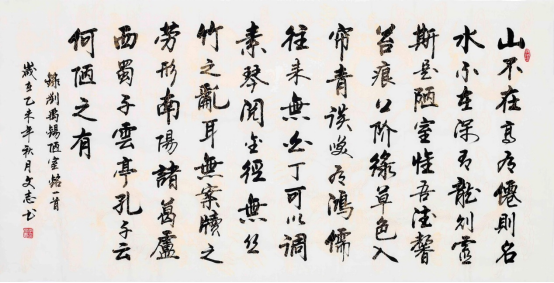 山不在高有僊則名
水不在深有龍則靈
斯是陋室惟吾德馨
苔痕上階綠草色入
帘青談咲有鴻儒
往来無白丁可以調
素琴閱金經無丝
竹之亂耳無案牘之
劳形南陽諸葛廬
西蜀子雲亭孔子云
何陋之有
錄刘禹錫陋室銘一首
歲在乙未年秋月文志书